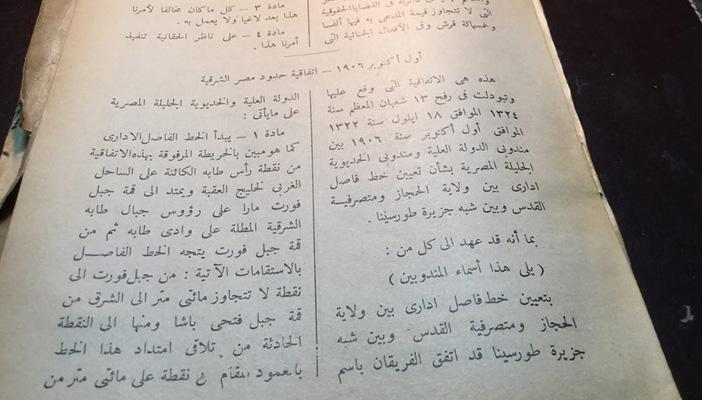 التى لا تتجاوز قيمة المدعى به فيها ألفا
وخمسمائة قرش وفى الأفعال الجنائية التى
مادة ٣ — كل ما كان مخالفا لأمرنا
هذا يعد لاغيا ولا يعمل به .
مادة ٤ — على ناظر الحقانية تنفيذ
أمرنا هذا .
أول أكتوبر ١٩٠٦ — اتفاقية حدود مصر الشرقية
هذه هى الاتفاقية التى وقع عليها
وتبودلت فى رفح ١٣ شعبان المعظم سنة
١٣٢٤ الموافق ١٨ ايلول سنة ١٣٢٢
الموافق أول أكتوبر سنة ١٩٠٦ بين
مندوبى الدولة العلية ومندوبى الخديوية
الجليلة المصرية بشأن تعيين خط فاصل
ادارى بين ولاية الحجاز ومتصرفية
القدس وبين شبه جزيرة طورسينا .
بما أنه قد عهد الى كل من :
( يلى هذا أسماء المندوبين )
بتعيين خط فاصل ادارى بين ولاية
الحجاز ومتصرفية القدس وبين شبه
جزيرة طورسينا قد اتفق الفريقان باسم
الدولة العلية والخديوية الجليلة المصرية
على مايأتى :
مادة ١ — يبدأ الخط الفاصل الادارى
كما هو مبين بالخريطة المرفوقة بهذه الاتفاقية
من نقطة رأس طابه الكائنة على الساحل
الغربى لخليج العقبة ويمتد الى قمة جبل
فورت مارا على رؤوس جبال طابه
الشرقية المطلة على وادى طابه ثم من
قمة جبل فورت يتجه الخط الفاصل
بالاستقامات الآتية : من جبل فورت الى
نقطة لا تتجاوز مائتى متر الى الشرق من
قمة جبل فتحى باشا ومنها الى النقطة
الحادثة من تلاقى امتداد هذا الخط
بالعمود المقام نقطة على مائتى متر من